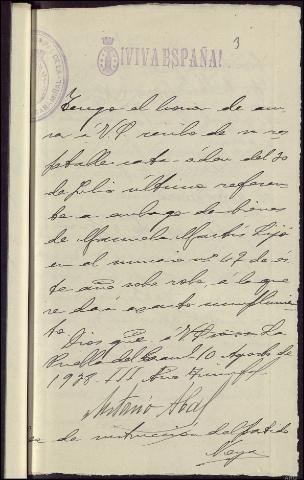 ¡VIVA ESPAÑA!
3
Tengo el honor de acu-
sar á V.S. recibo de su res-
petable carta-órden del 30
de Julio último referen-
te a embargo de bienes
de Manuela Martís Fijó
en el sumario nº 42 de es-
te año sobre robo, á la que
se dará exacto cumplimien-
to.
Dios guarde á V.S. muchos
Puebla del 10 Agosto de
1938. III Año Triunfal
Antonio Abal
de instrucción del partido
Noya